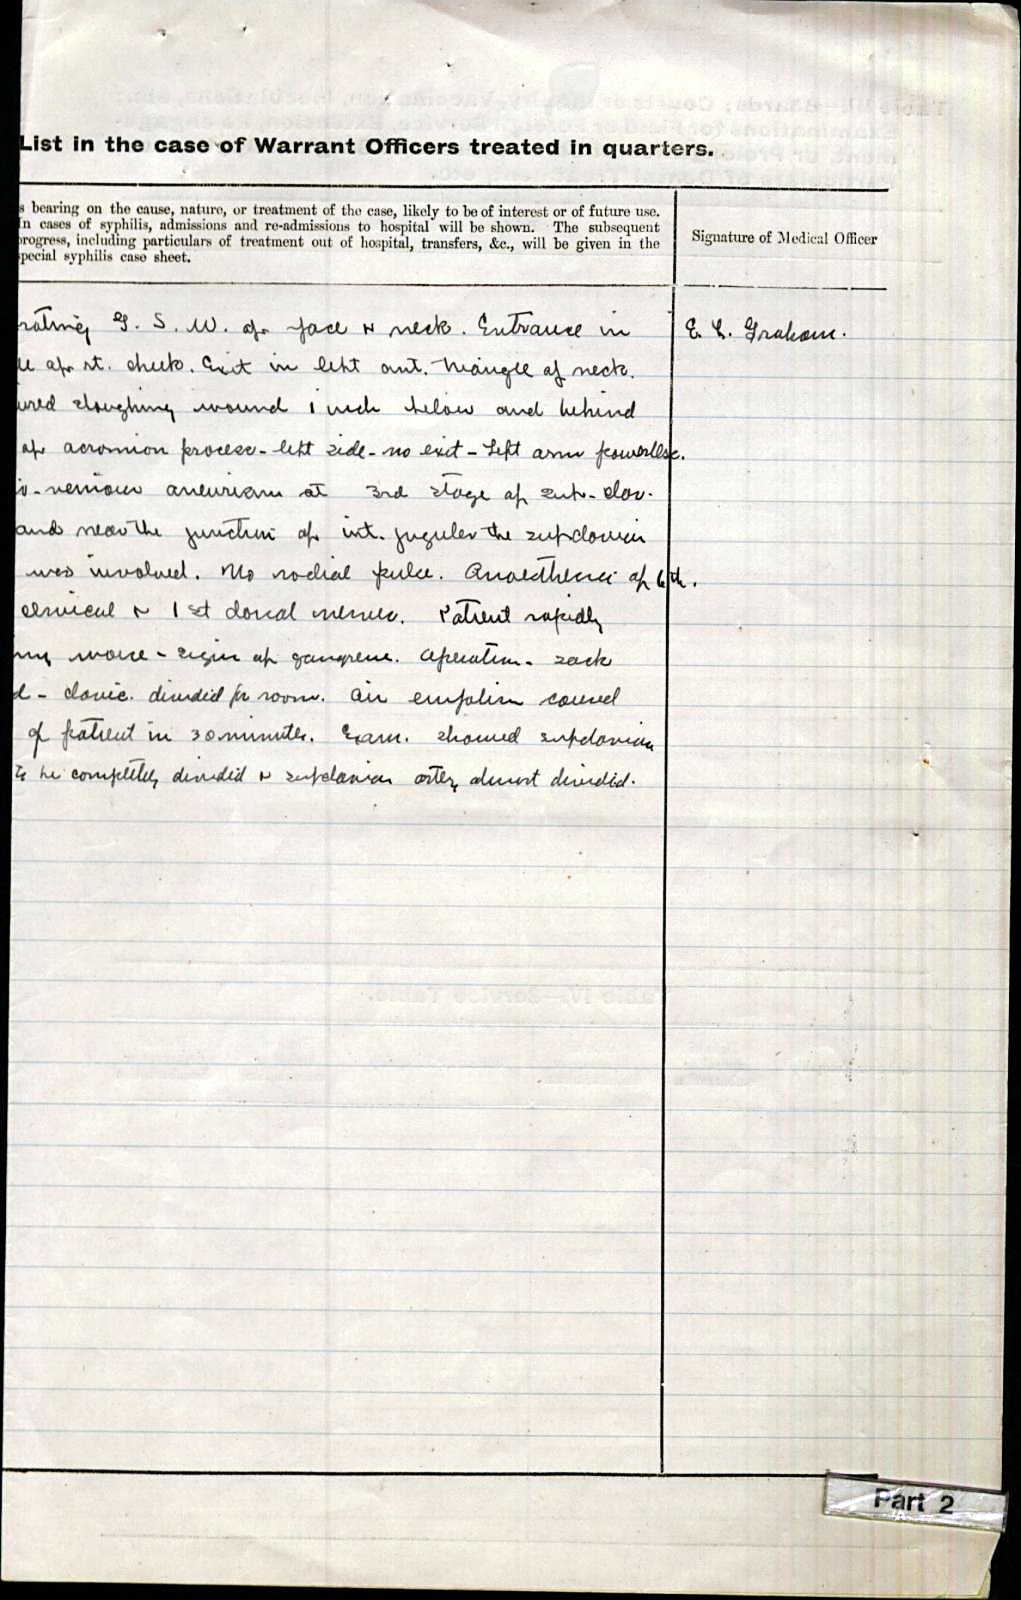 List in the case of Warrant Officers treated in quarters.
s bearing on the cause, nature, or treatment of the case, likely to be of interest or of future use.
In cases of syphilis, admissions and re-admissions to hospital will be shown. The subsequent
progress, including particulars of treatment out of hospital, transfers, &c., will be given in the
special syphilis case sheet.
Signature of Medical Officer
rating G. S. W. of face & neck. Entrance in
E. C. Graham.
le of rt. cheek. Exit in left ant. triangle of neck.
ured sloughing wound 1 inch below and behind
of acromion process - left side - no exit - Left arm powerless.
io-venious aneurism at 3rd stage of sub-clav.
and near the junction of int. jugular the subclavian
was involved. No radial pulse. Anaesthesia of 6th.
cervical & 1st dorsal nerves. Patient rapidly
ing worse - signs of gangrene. Operation - sack
d - clavic. divided for room. Air embolism caused
of patient in 30 minutes. Exam. showed subclavian
to be completely divided & subclavian artery almost divided.
Table IV.—Service Table.
Part 2